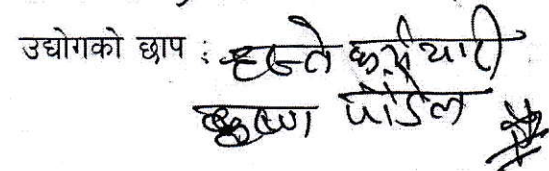 उद्योगको छाप : हस्ते कर्मचारी
कृष्ण पौडेल